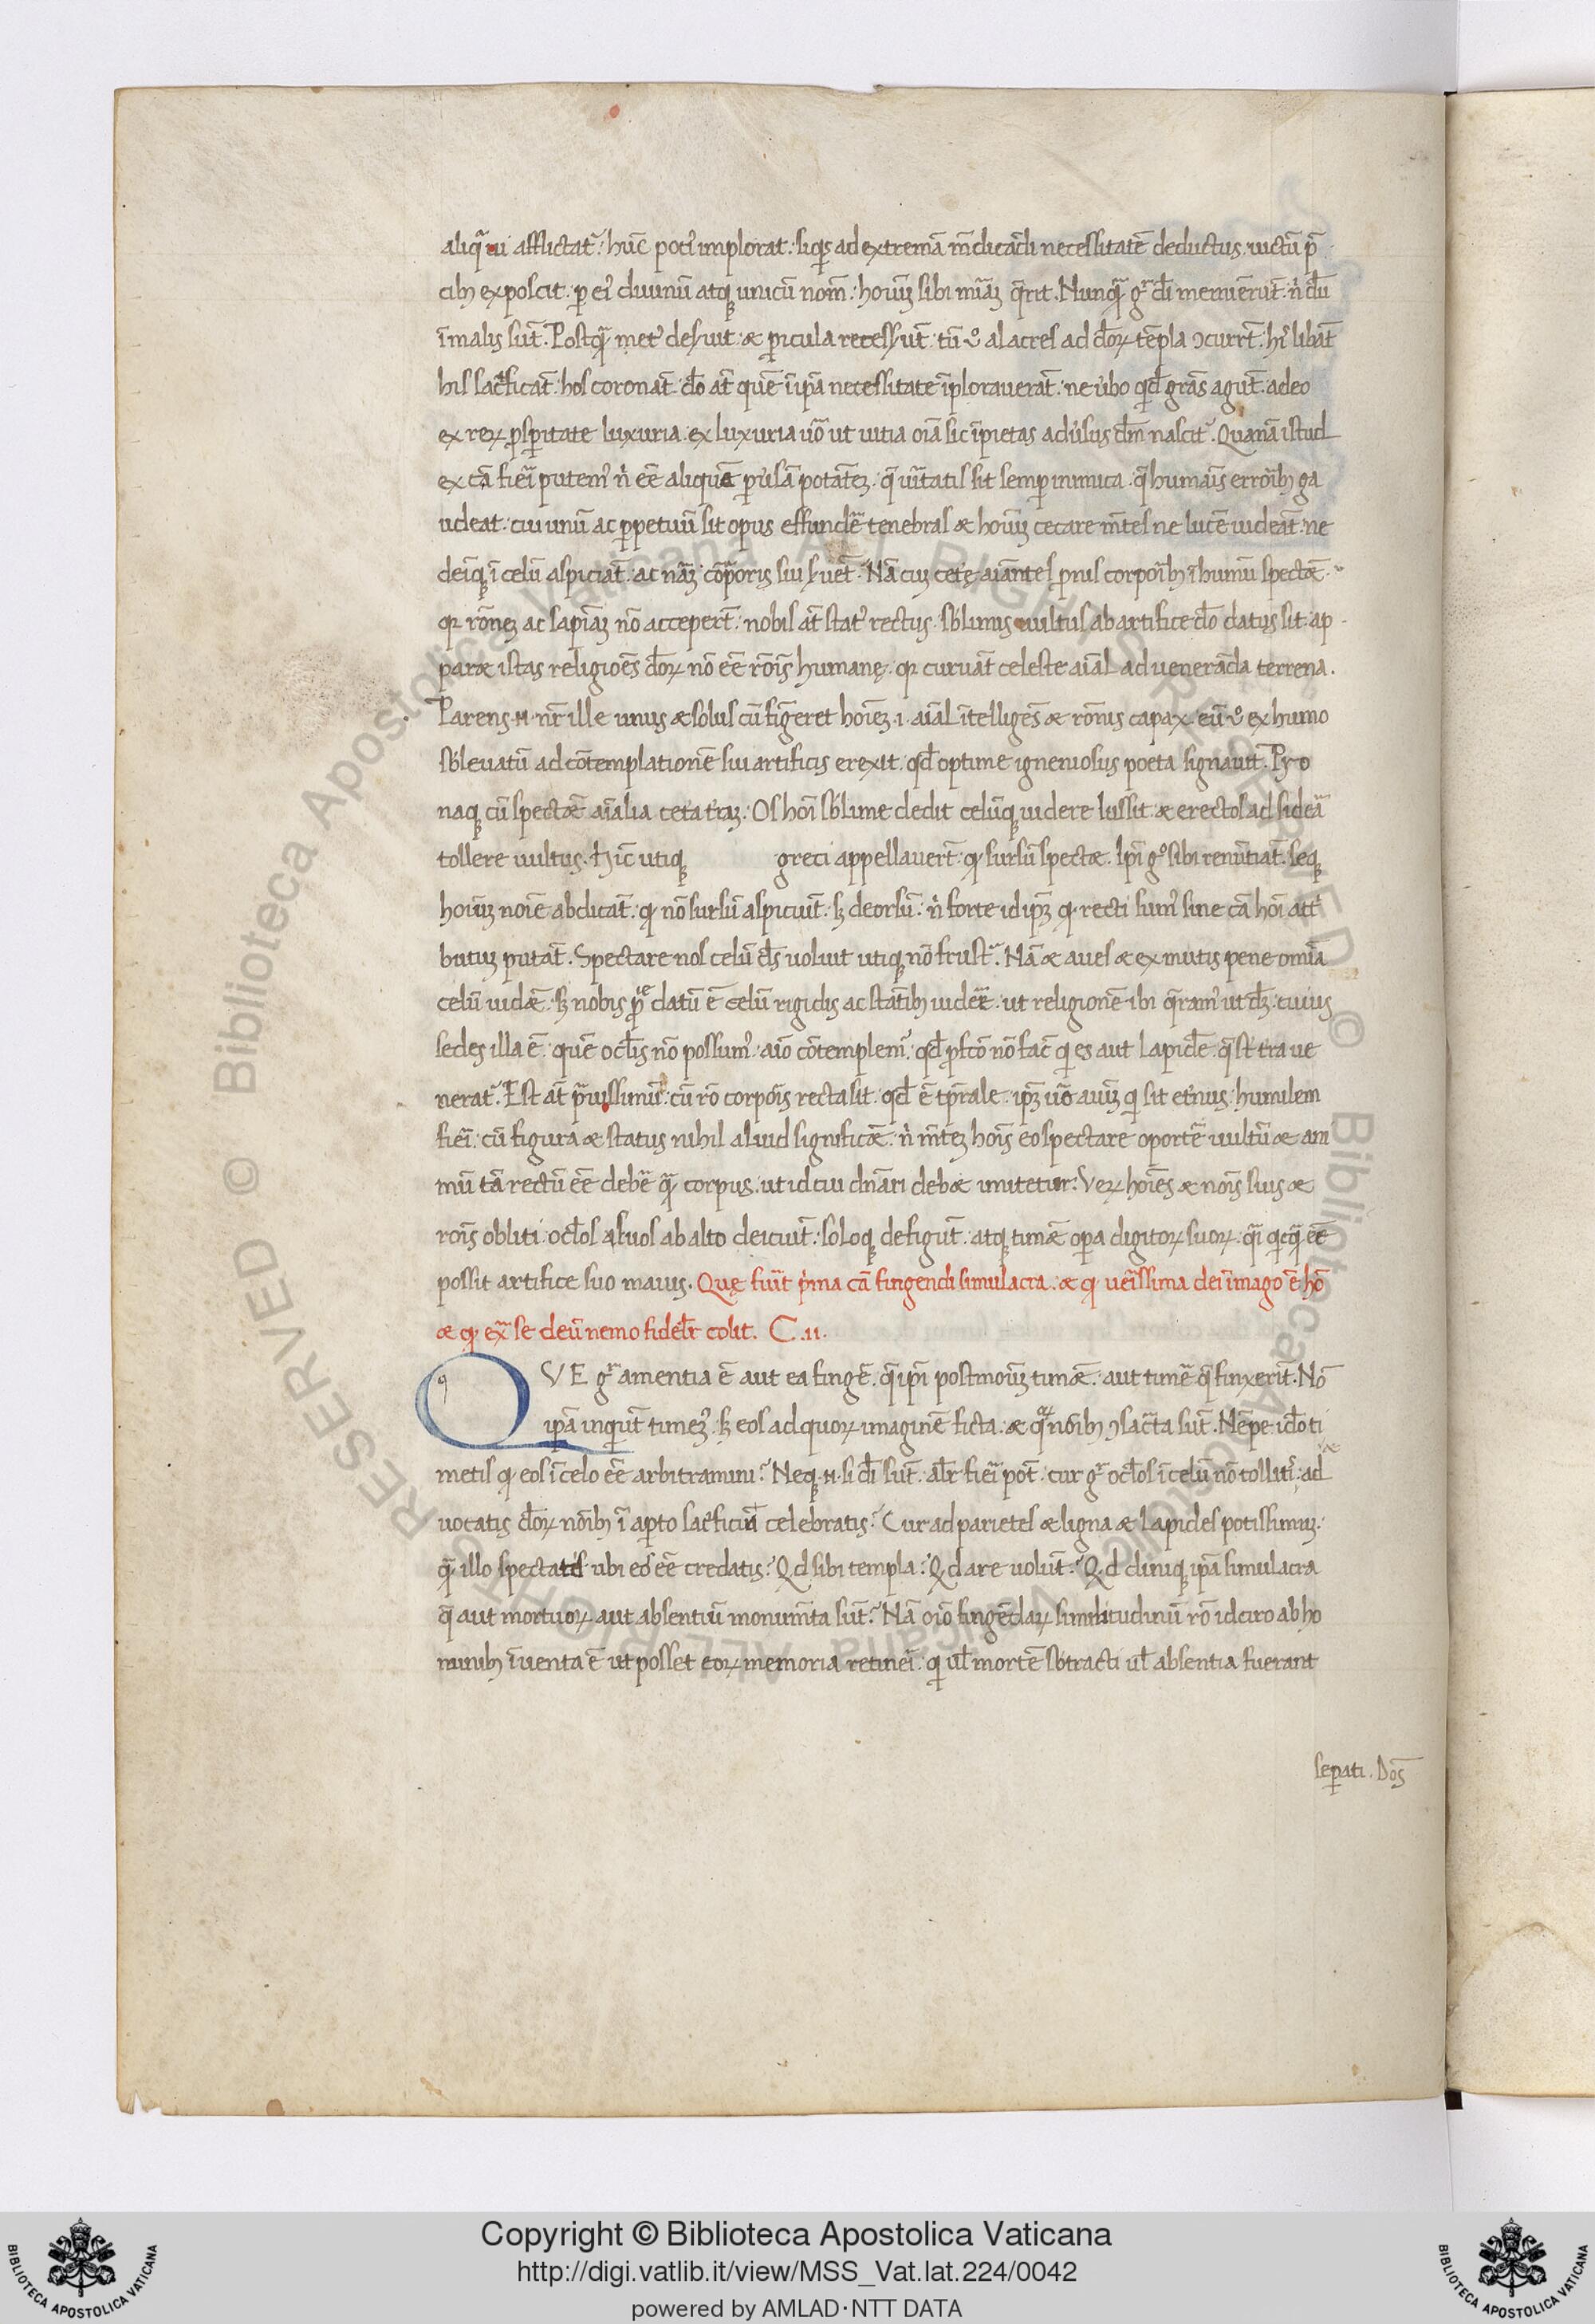 aliq̃ ui afflictat᷑. hūc poti᷒ implorat. siq̇s ad extremã m̃dicãdi necessitatē deductus. uictū p̄
cibꝫ exposcit. ꝑ ei᷒ diuinū atqꝫ unicū nom̃. hoıũꝫ sibi miãꝫ q̄rit. Nunq̃ gͬ dī meminerũt. n̊ dū
ī malis sūt. Postq̃ met᷒ deseruit. ⁊ ꝑicula recesserūt. tū ů alacres ad deoꝝ tēpla ɔcurrūt. hı᷒ libāt
his sacͥficāt. hos coronāt. dō at̄ quē ī ip̄a necessitate īplorauerāt. ne úbo qͥdē grās agūt. adeo
ex reꝝ ꝓsꝑitate luxuria. ex luxuria uͦo ut uitia oīa sic īpietas aduͥsus dm̄ nascit᷑. Quanā istud
ex cā fieͥ putem᷒ n̊ eē aliquā ꝑuͥsā potātēꝫ. q̄ uͥitatis sit semꝑ inimica. q̄ humaīs erroibꝫ ga
udeat. cui unū ac ꝑpetuū sit opus effundeͤ tenebras ⁊ hoıũꝫ cecare m̄tes ne lucē uideāt. ne
deīqꝫ ī celū aspiciāt. ac nãꝫ corꝑoris sui seruēt. Nā cuꝫ cetę aıantes pͥnis corpoibꝫ ī humū spectēt.
qꝛ rōneꝫ ac sapiaꝫ nō acceperūt. nobis at̄ stat᷒ rectus. sb̄limis uultus ab artifice dō datus sit. ap
paret istas religioēs deoꝝ nō eē rōis humanę. qꝛ curuāt celeste aıal ad venerāda terrena.
Parens .n. nr̄ ille unus ⁊ solus cū fīgeret hoıeꝫ .i. aıal ītelligēs ⁊ rōnis capax. eū ů ex humo
sb̄leuatū ad cōtemplationē sui artificis erexit. qd̄ optime igneniosus poeta signauit. Pro
naqꝫ cū spectēt aīalia ceta t̄raꝫ. Os hoı sb̄lime dedit celūqꝫ uidere Iussit. ⁊ erectos ad sideͣ
tollere uultus. Hīc utiqꝫ greci appellauerūt. qꝛ sursū spectet. Ipͥ gͦ sibi renūtiāt. seqꝫ
hoıũꝫ noīe abdicāt. qͥ nō sursū aspiciūt. sꝫ deorsū. n̊ forte id ip̄ꝫ qͥ recti sum᷒ sine cā hoı attͥ
butuꝫ putāt. Spectare nos celū ds̄ uoluit utiqꝫ nō frustͣ. Nā ⁊ aues ⁊ ex mutis pene omīa
celū uidēt. sꝫ nobis ꝓpͥe datū ē celū rigidis ac stātibꝫ uideͤ. ut religionē ibi q̄ram᷒ ut dꝫ. cuius
sedes illa ē. quē oclīs nō possum᷒. aīo cōtemplem᷒. qd̄ ꝓfcō nō facͭ qͥ es aut Lapidē. q̄ st̄ t̄ra ue
nerat᷑. Est at̄ pͣuissimū. cū rō corporis recta sit. qd̄ ē tꝑale. ip̄ꝫ uͦo aıũꝫ qͥ sit et᷒nus. humilem
fieͥ. cū figura ⁊ status nihil aliud significēt. n̊ m̄teꝫ hoıs eo spectare oportē uultū ⁊ ani
mū tā rectū eē debē q̃ corpus. ut id cui dn̄ari debet imitetur. Veꝝ hoıēs ⁊ noıs suis ⁊
roıs obliti. oclos a suos ab alto deiciūt. soloqꝫ defigūt. atqꝫ timēt oꝑa digitoꝝ suoꝝ. q̄i qͥcq̄ eē
possit artifice suo maius. Quę fuīt pͥma cā fingendi simulacra. ⁊ qͥ ueͥissima dei īmago ē hō
⁊ qͥ exͣ se deū nemo fidelͥr colit. C .II.
QVE gͬ amentia ē aut ea fingē. q̄ ipͥ postmoıũꝫ timēt. aut timē q̄ finxerīt. Nō
ip̄a inqͥūt timeꝫ᷒. sꝫ eos ad quoꝝ imaginē ficta. ⁊ qͦꝝ noıbꝫ ɔsacͣta sūt. Nēpe idͦ ti
metis qͥ eos ī celo eē arbitramini. Neqꝫ .n. si dī sūt. alͥr fieͥ pōt. cur gͬ oclōs ī celū nō tollitͥis. ad
uocatis deoꝝ noıbꝫ ī aꝑto sacͥficia celebratis. Cur ad parietes ⁊ ligna ⁊ Lapides potissimuꝫ.
q̄ illo spectatis ubi eos eē credatis. Qd sibi templa. Qd are uolūt. Qd diniqꝫ ip̄a simulacra
q̄ aut mortuoꝝ aut absentiū monum̄ta sūt. Nā oıo fingēdaꝝ similitudinū rō idciro ab ho
minibꝫ īuenta ē ut posset eoꝝ memoria retineͥ. qͥ ul̄ mortē sb̄tracti ul̄ absentia fuerant
seꝑati. Dos
Copyright © Biblioteca Apostolica Vaticana
http://digi.vatlib.it/view/MSS_Vat.lat.224/0042
powered by AMLAD·NTT DATA
BIBLIOTECA APOSTOLICA VATICANA
BIBLIOTECA APOSTOLICA VATICANA